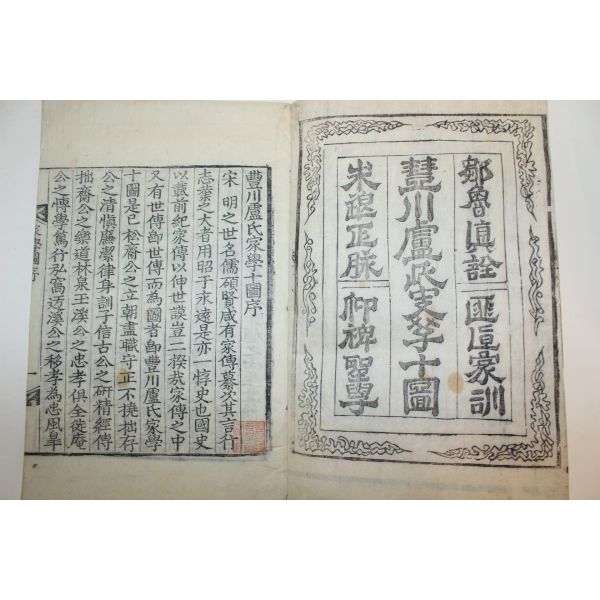 鄒魯眞詮 匪叵家訓
豐川盧氏家學十圖
朱退正脉 仰裨聖學
豐川盧氏家學十圖序
宋 明之世名儒碩賢咸有家傳纂次其言行
志業之大者用昭于永遠是亦 惇史也國史
以載前紀家傳以伸世謨豈二揆哉家傳之中
又有世傳卽世傳而爲圖者卽豐川盧氏家學
十圖是已松齋公之立朝盡職守正不撓拙存
公之清愼廉潔律身訓子信古公之硏精經傳
拙齋公之樂道林泉玉溪公之忠孝俱全徙庵
公之博學篤行弘窩迃溪公之移孝爲忠風臯
家學圖序
一